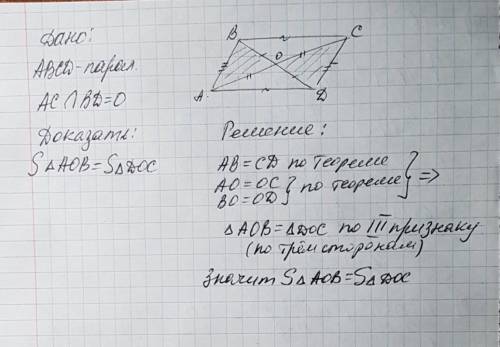 Дано:
ABCD-парал.
AC∩BD=O
Доказать:
S△AOB=S△DOC
B C
O
A D
Решение:
AB=CD по теореме
AO=OC
BO=OD } по теореме } =>
△AOB=△DOC по III признаку
(по трём сторонам)
Значит S△AOB=S△DOC